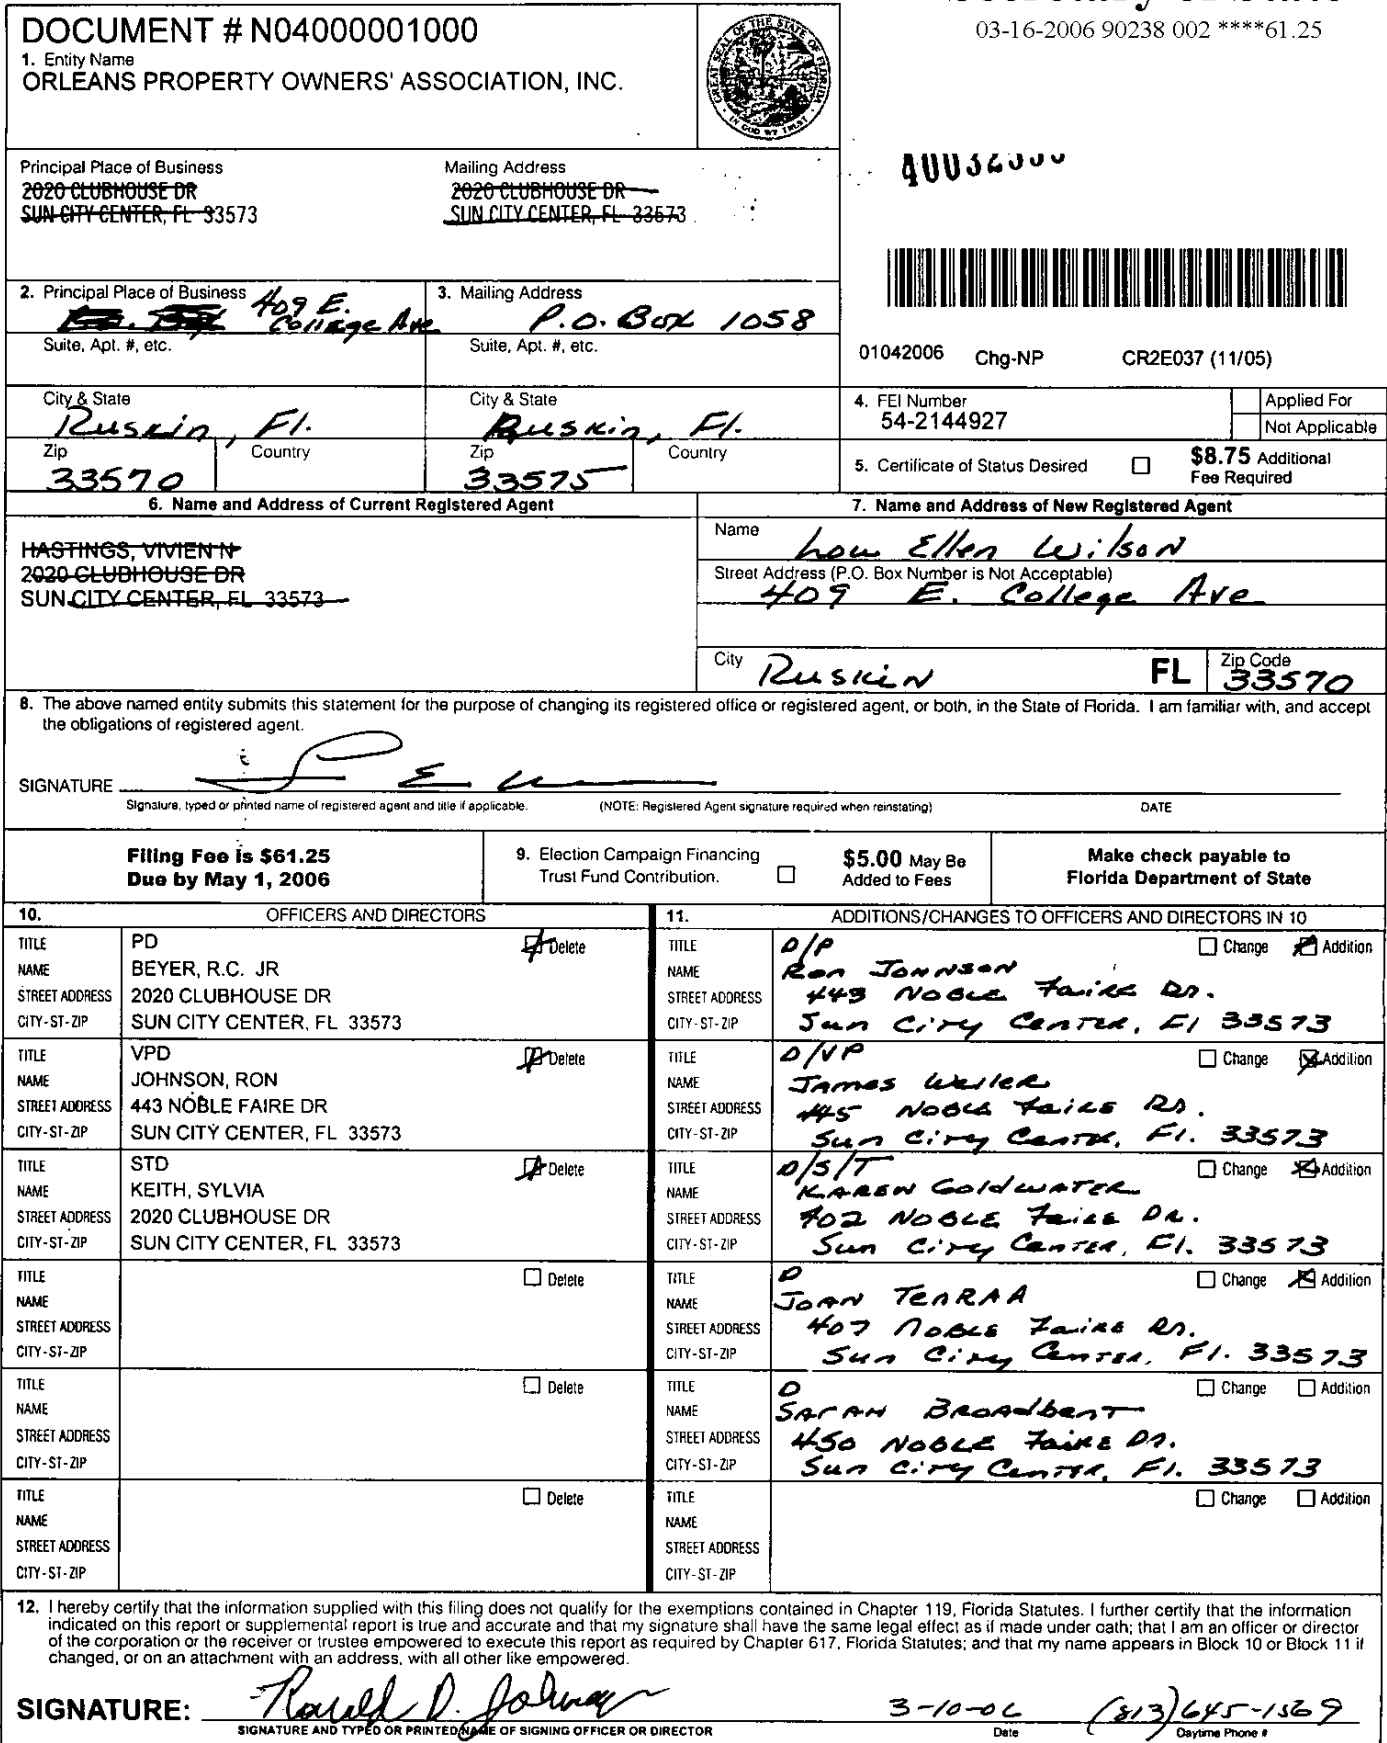 03-16-2006 90238 002 ****61.25
DOCUMENT # N04000001000
1. Entity Name
ORLEANS PROPERTY OWNERS' ASSOCIATION, INC.
GREAT SEAL OF THE STATE OF FLORIDA
IN GOD WE TRUST
Principal Place of Business
2020 CLUBHOUSE DR
SUN CITY CENTER, FL 33573
Mailing Address
2020 CLUBHOUSE DR
SUN CITY CENTER, FL 33573
2. Principal Place of Business 409 E.
College Ave
Suite, Apt. #, etc.
3. Mailing Address
P.O. Box 1058
Suite, Apt. #, etc.
01042006 Chg-NP CR2E037 (11/05)
City & State
Ruskin, Fl.
City & State
Ruskin, Fl.
Zip Country
33570
Zip Country
33575
4. FEI Number
54-2144927
Applied For
Not Applicable
5. Certificate of Status Desired
$8.75 Additional
Fee Required
6. Name and Address of Current Registered Agent
HASTINGS, VIVIEN N
2020 CLUBHOUSE DR
SUN CITY CENTER, FL 33573
7. Name and Address of New Registered Agent
Name
Lou Ellen Wilson
Street Address (P.O. Box Number is Not Acceptable)
409 E. College Ave
City Ruskin FL Zip Code
33570
8. The above named entity submits this statement for the purpose of changing its registered office or registered agent, or both, in the State of Florida. I am familiar with, and accept
the obligations of registered agent.
SIGNATURE
Signature, typed or printed name of registered agent and title if applicable. (NOTE: Registered Agent signature required when reinstating) DATE
Filing Fee is $61.25
Due by May 1, 2006
9. Election Campaign Financing
Trust Fund Contribution.
$5.00 May Be
Added to Fees
Make check payable to
Florida Department of State
10. OFFICERS AND DIRECTORS
TITLE PD Delete
NAME BEYER, R.C. JR
STREET ADDRESS 2020 CLUBHOUSE DR
CITY-ST-ZIP SUN CITY CENTER, FL 33573
TITLE VPD Delete
NAME JOHNSON, RON
STREET ADDRESS 443 NOBLE FAIRE DR
CITY-ST-ZIP SUN CITY CENTER, FL 33573
TITLE STD Delete
NAME KEITH, SYLVIA
STREET ADDRESS 2020 CLUBHOUSE DR
CITY-ST-ZIP SUN CITY CENTER, FL 33573
TITLE Delete
NAME
STREET ADDRESS
CITY-ST-ZIP
TITLE Delete
NAME
STREET ADDRESS
CITY-ST-ZIP
TITLE Delete
NAME
STREET ADDRESS
CITY-ST-ZIP
11. ADDITIONS/CHANGES TO OFFICERS AND DIRECTORS IN 10
TITLE D/P Change Addition
NAME Ron Johnson
STREET ADDRESS 443 Noble Faire Dr.
CITY-ST-ZIP Sun City Center, Fl 33573
TITLE D/VP Change Addition
NAME James
STREET ADDRESS 445 Noble Faire Dr.
CITY-ST-ZIP Sun City Center, Fl. 33573
TITLE D/S/T Change Addition
NAME Karen Goldwater
STREET ADDRESS 402 Noble Faire Dr.
CITY-ST-ZIP Sun City Center, Fl. 33573
TITLE D Change Addition
NAME Joan
STREET ADDRESS 407 Noble Faire Dr.
CITY-ST-ZIP Sun City Center, Fl. 33573
TITLE D Change Addition
NAME Sarah Broadbent
STREET ADDRESS 450 Noble Faire Dr.
CITY-ST-ZIP Sun City Center, Fl. 33573
TITLE Change Addition
NAME
STREET ADDRESS
CITY-ST-ZIP
12. I hereby certify that the information supplied with this filing does not qualify for the exemptions contained in Chapter 119, Florida Statutes. I further certify that the information
indicated on this report or supplemental report is true and accurate and that my signature shall have the same legal effect as if made under oath; that I am an officer or director
of the corporation or the receiver or trustee empowered to execute this report as required by Chapter 617, Florida Statutes; and that my name appears in Block 10 or Block 11 if
changed, or on an attachment with an address, with all other like empowered.
SIGNATURE: Ronald D. Johnson 3-10-06 (813)645-1569
SIGNATURE AND TYPED OR PRINTED NAME OF SIGNING OFFICER OR DIRECTOR Date Daytime Phone #